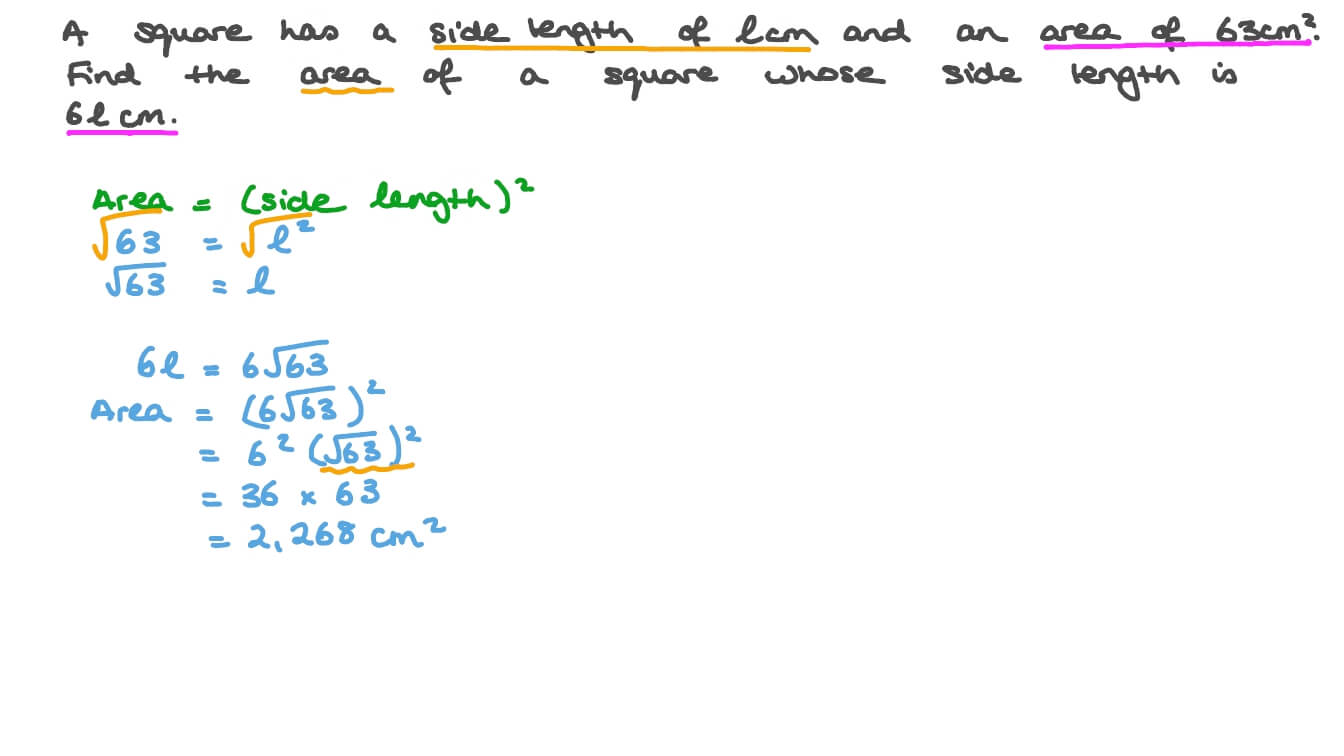 A square has a side length of l cm and an area of 63cm².
Find the area of a square whose side length is
6l cm.
Area = (side length)²
√63 = √l²
√63 = l
6l = 6√63
Area = (6√63)²
= 6² (√63)²
= 36 × 63
= 2,268 cm²